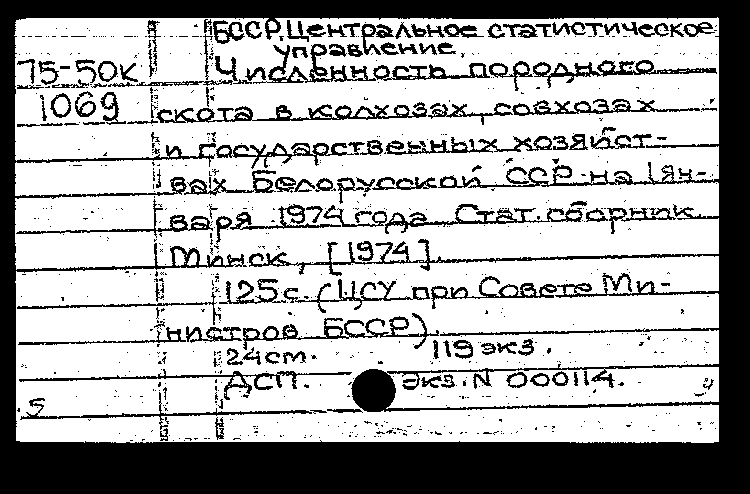 БССР. Центральное статистическое
управление.
75-50к Численность породного
1069 скота в колхозах, совхозах
и государственных хозяйст-
вах Белорусской ССР на 1 ян-
варя 1974 года. Стат. сборник.
Минск, [1974].
125 с. (ЦСУ при Совете Ми-
нистров БССР).
24 см. 119 экз.
ДСП. экз. N 000114.
5